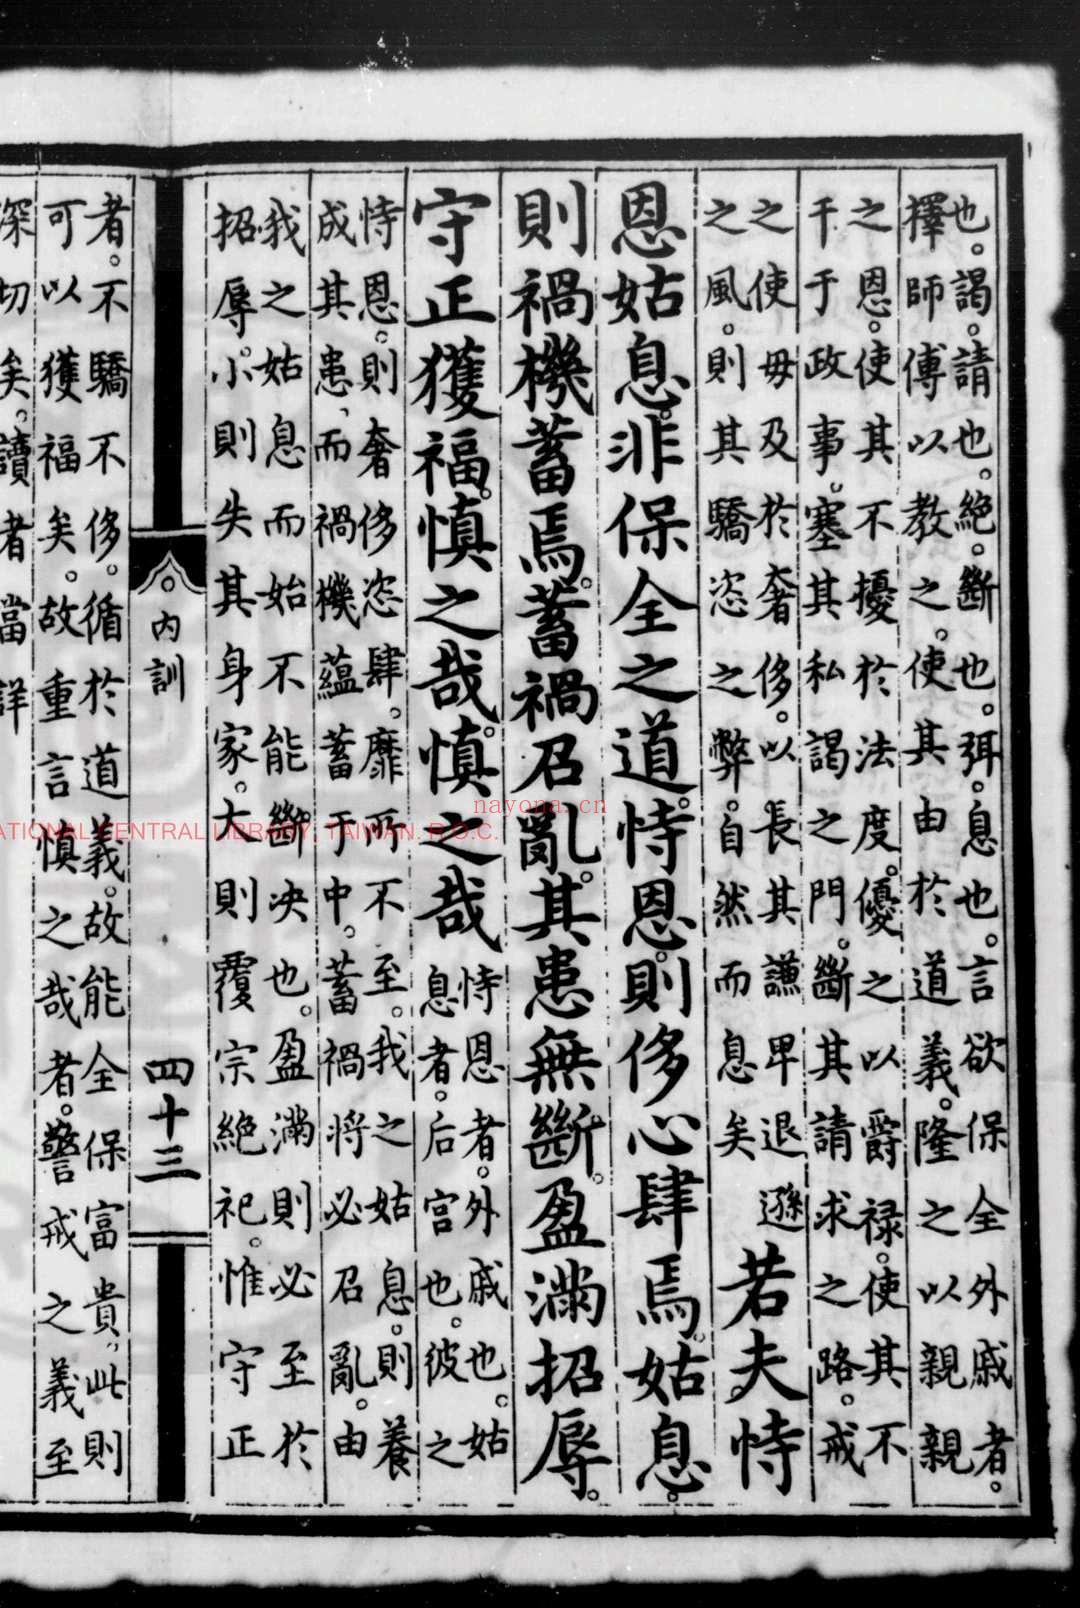 也。謁。請也。絕。斷也。弭。息也。言欲保全外戚者。
擇師傅以教之。使其由於道義。隆之以親親
之恩。使其不擾於法度。優之以爵祿。使其不
干于政事。塞其私謁之門。斷其請求之路。戒
之使毋及於奢侈。以長其謙卑退遜
之風。則其驕恣之弊。自然而息矣
若夫恃
恩姑息。非保全之道。恃恩則侈心肆焉。姑息。
則禍機蓄焉。蓄禍召亂。其患無斷。盈滿招辱。
守正獲福。慎之哉。慎之哉
恃恩者。外戚也。姑
息者。后宮也。彼之
恃恩。則奢侈恣肆。靡所不至。我之姑息。則養
成其患、而禍機蘊蓄于中。蓄禍將必召亂。由
我之姑息而始不能斷決也。盈滿則必至於
招辱。小則失其身家。大則覆宗絕祀。惟守正
內訓
四十三
者。不驕不侈。循於道義。故能全保富貴。此則
可以獲福矣。故重言慎之哉者。警戒之義至
深切矣。讀者當詳
nayona.cn
NATIONAL CENTRAL LIBRARY, TAIWAN, R.O.C.